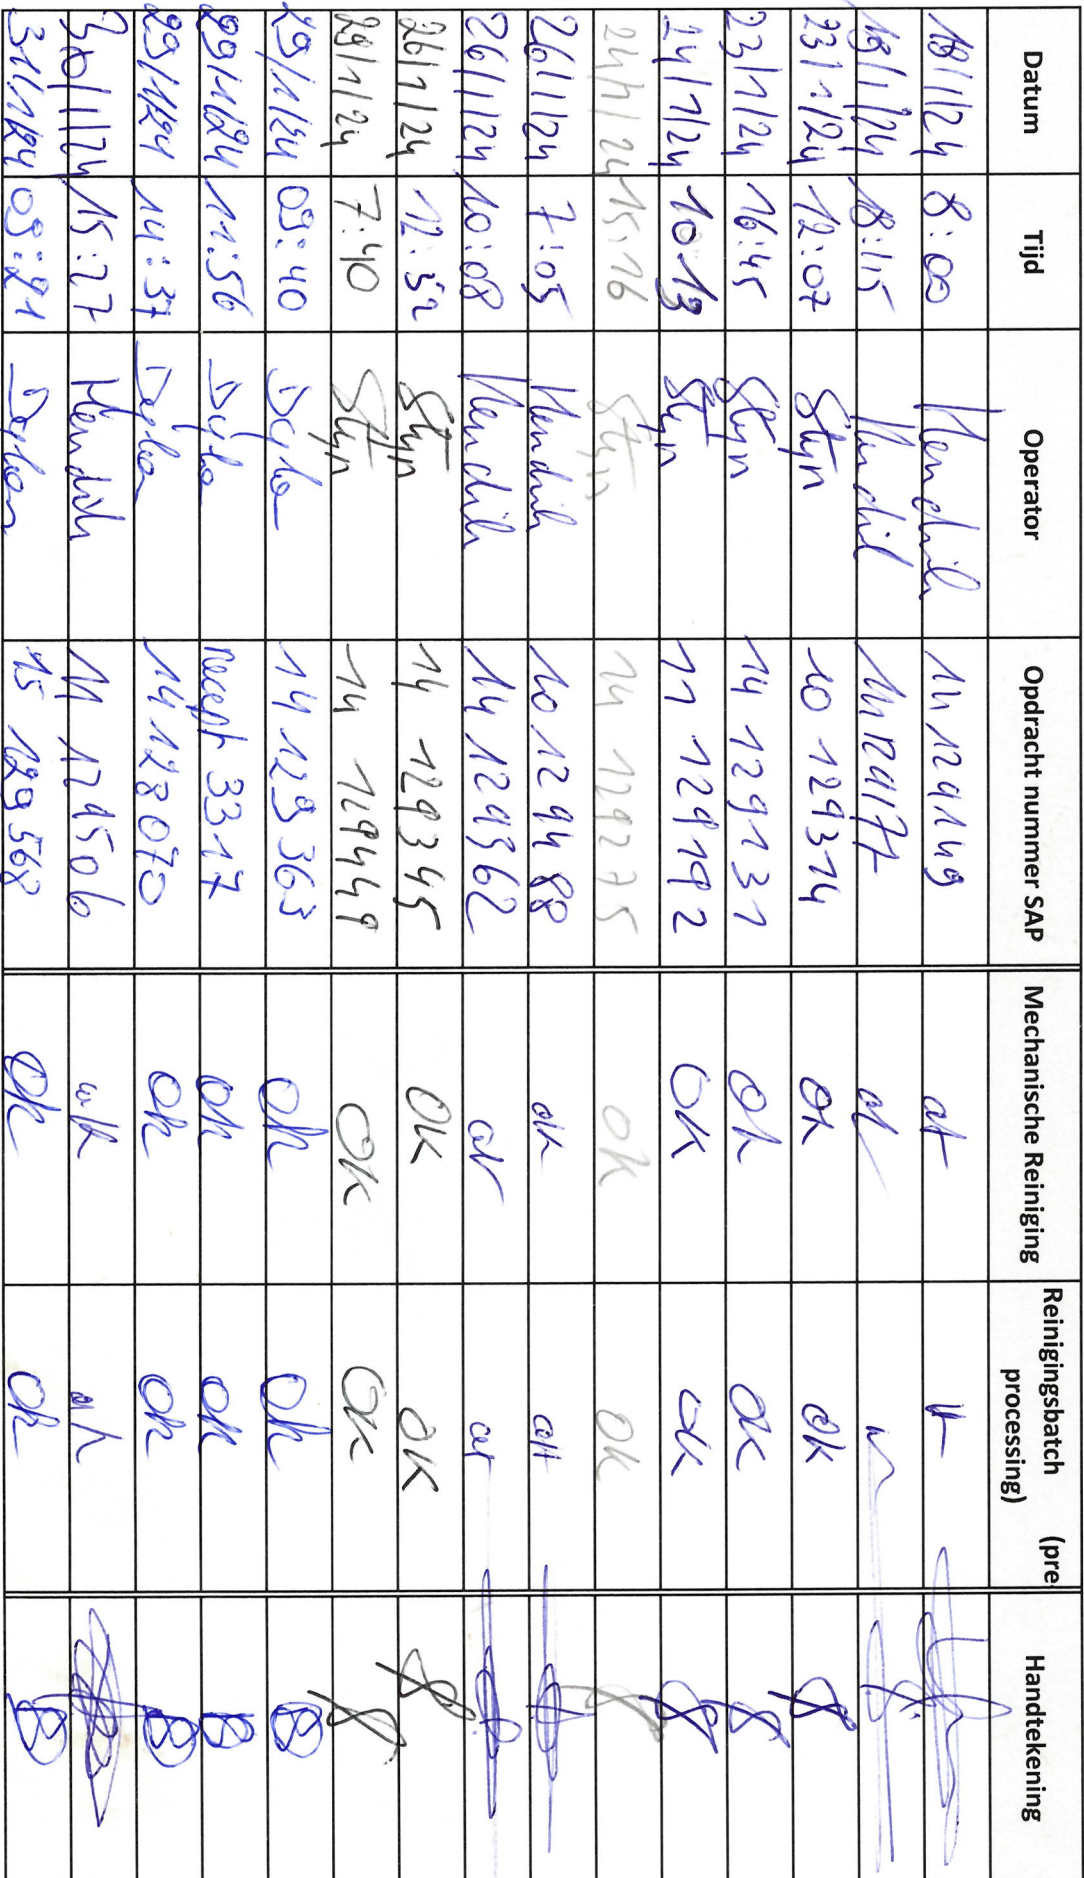 Datum Tijd Operator Opdracht nummer SAP Mechanische Reiniging Reinigingsbatch (pre processing) Handtekening
18/1/24 8:00 Hendrik 14 129149 ok
19/1/24 18:15 Hendrik 14 129177 ok
23/1/24 12:07 Styn 10 129314 ok ok
23/1/24 16:45 Styn 14 129131 ok ok
24/1/24 10:13 Styn 11 129192 ok ok
24/1/24 15:16 Styn 14 129275 ok ok
26/1/24 7:05 Hendrik 10 129488 ok ok
26/1/24 10:08 Hendrik 14 129362 ok ok
26/1/24 12:52 Styn 14 129345 OK OK
29/1/24 7:40 Styn 14 129449 OK OK
29/1/24 09:40 Dylan 14 129363 Ok Ok
29/1/24 11:56 Dylan recept 3317 ok ok
29/1/24 14:37 Dylan 14 128070 Ok Ok
30/1/24 15:27 Hendrik 11 129506 ok ok
31/1/24 09:21 Dylan 15 129568 Ok Ok